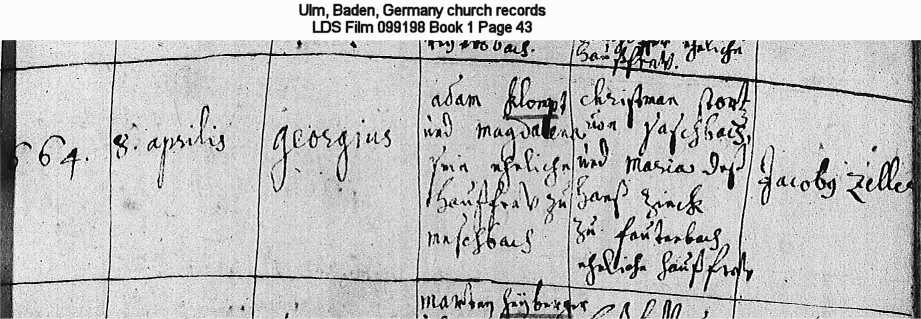 Ulm, Baden, Germany church records
LDS Film 099198 Book 1 Page 43
ehliche
haußfraw.
664.
8. aprilis
Georgius
adam Klompt
und magdalena
sein ehliche
haußfraw zu
meschbach
christman
von saschbach,
und maria deß
hanß zinck
zu lauterbach
ehliche haußfraw
Jacoby zeller
marten